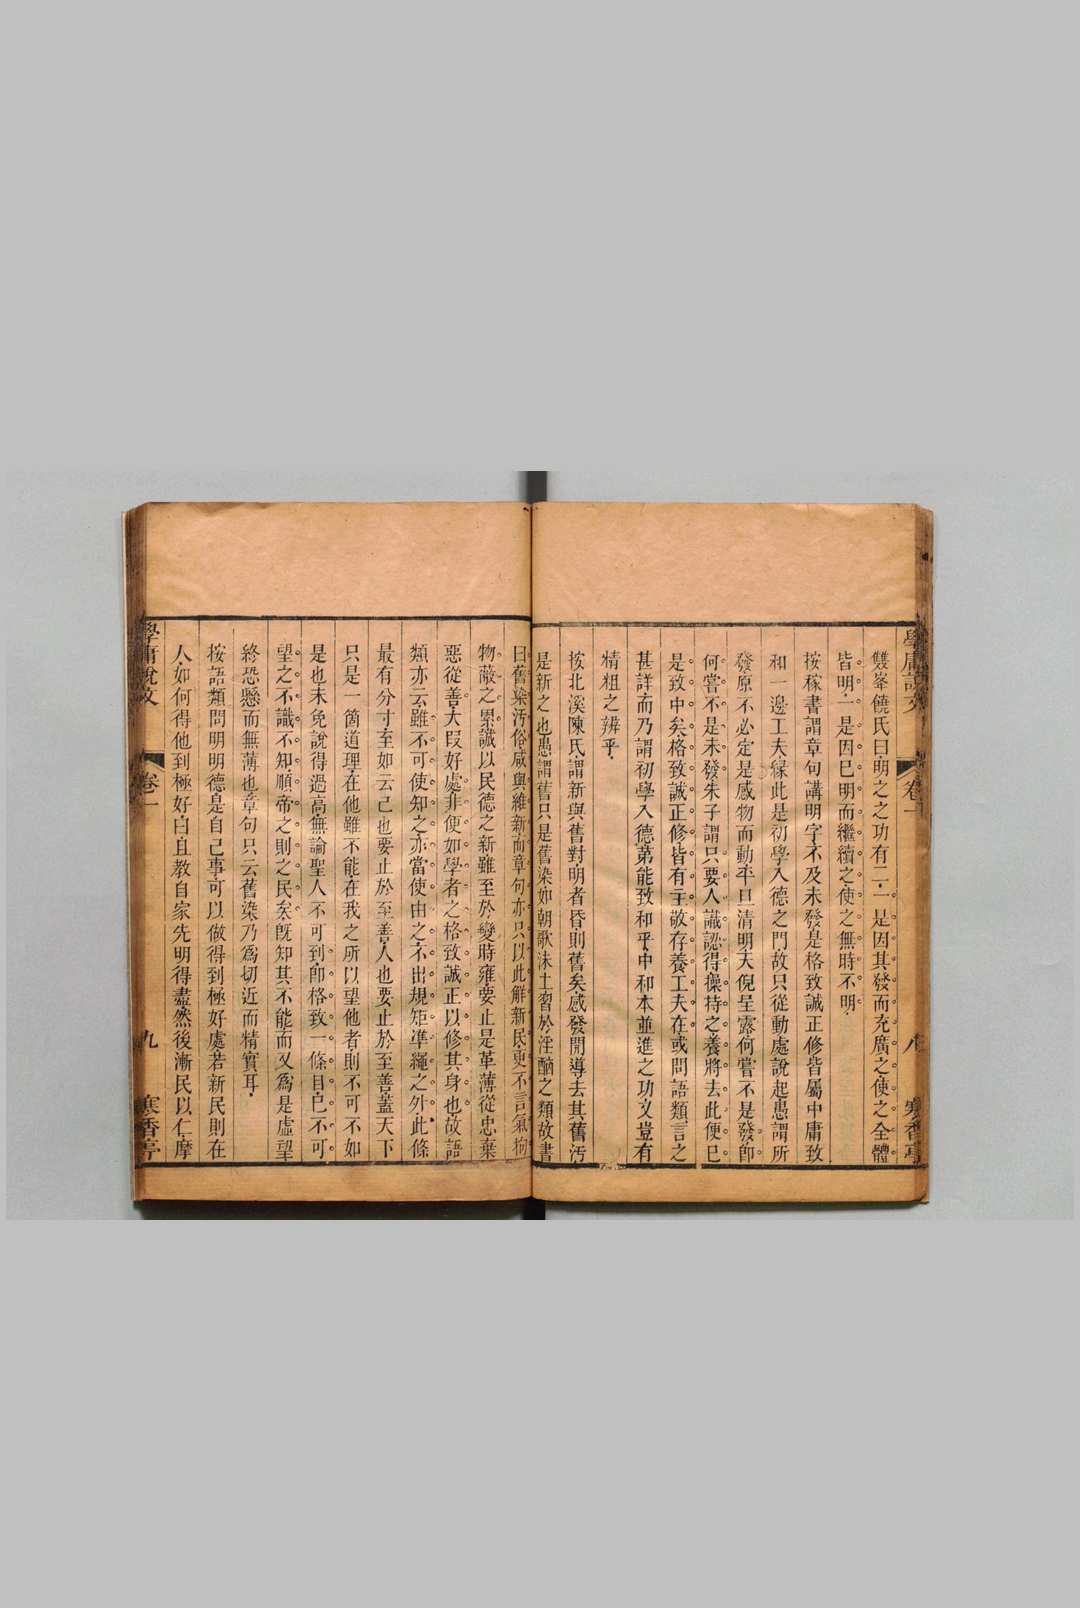 學庸說文 卷一 八 寒香亭
雙峯饒氏曰明之之功有二一是因其發而充廣之使之全體
皆明一是因已明而繼續之使之無時不明
按稼書謂章句講明字不及未發是格致誠正修皆屬中庸致
和一邊工夫緣此是初學入德之門故只從動處說起愚謂所
發原不必定是感物而動平旦清明天倪呈露何嘗不是發卽
何嘗不是未發朱子謂只要人識認得操持之養將去此便已
是致中矣格致誠正修皆有主敬存養工夫在或問語類言之
甚詳而乃謂初學入德第能致和乎中和本並進之功又豈有
精粗之辨乎
按北溪陳氏謂新與舊對明者昏則舊矣感發開導去其舊汚
是新之也愚謂舊只是舊染如朝歌沬土習於淫酗之類故書
曰舊染汚俗咸與維新而章句亦只以此解新民更不言氣拘
物蔽之累誠以民德之新雖至於變時雍要止是革薄從忠棄
惡從善大段好處非便如學者之格致誠正以修其身也故語
類亦云雖不可使知之亦當使由之不出規矩準繩之外此條
最有分寸至如云己也要止於至善人也要止於至善蓋天下
只是一箇道理在他雖不能在我之所以望他者則不可不如
是也未免說得過高無論聖人不可到卽格致一條目已不可
望之不識不知順帝之則之民矣旣知其不能而又爲是虛望
終恐懸而無薄也章句只云舊染乃爲切近而精實耳
按語類問明明德是自己事可以做得到極好處若新民則在
人如何得他到極好曰且教自家先明得盡然後漸民以仁摩
學庸說文 卷一 九 寒香亭